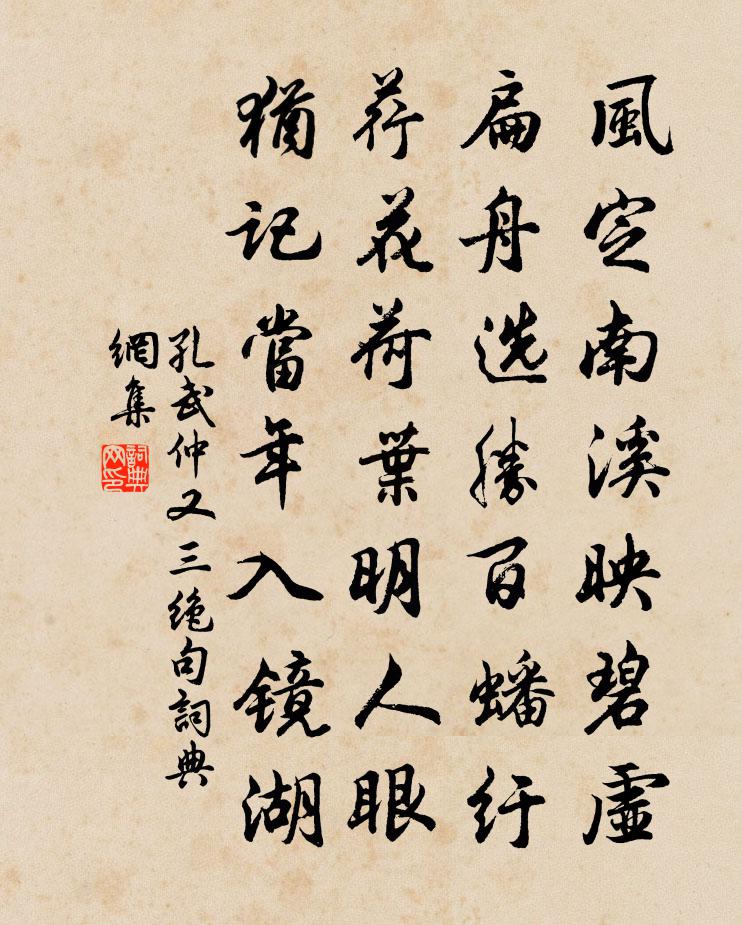 風定南溪映碧虛
扁舟选勝百蟠紆
荷花荷葉明人眼
猶記當年入镜湖
孔武仲又三绝句詞典
網集
詞典網印